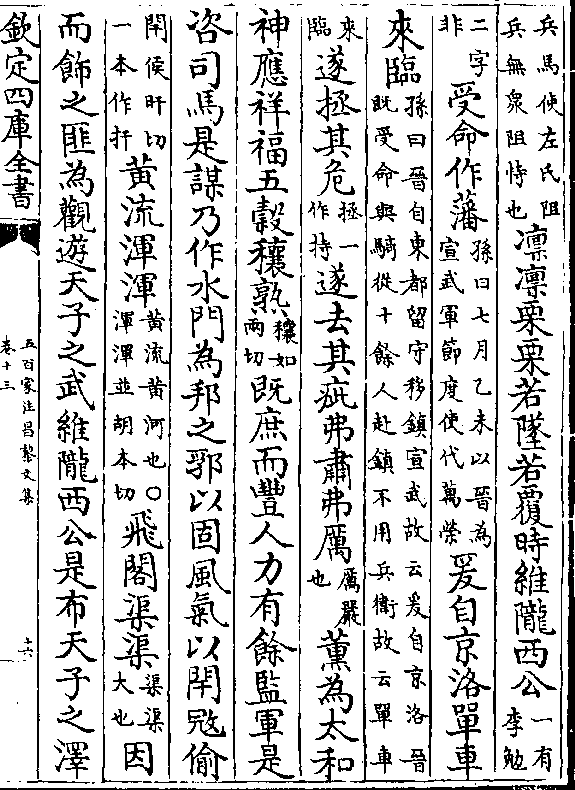 兵馬使左氏阻兵無衆阻恃也凛凛栗栗若墜若覆時維隴西公一有李勉
二字非受命作藩孫曰七月乙未以晉為宣武軍節度使代萬榮爰自京洛單車
來臨孫曰晉自東都留守移鎮宣武故云爰自京洛晉既受命與騎從十餘人赴鎮不用兵衛故云單車
來臨遂拯其危拯一作持遂去其疵弗肅弗厲厲嚴也薰為太和
神應祥福五穀穰熟穰如兩切既庶而豐人力有餘監軍是
咨司馬是謀乃作水門為邦之郛以固風氣以閈㓂偷
閈侯旰切一本作扞黄流渾渾黄流黄河也○渾渾並胡本切飛閣渠渠渠渠大也因
而飾之匪為觀遊天子之武維隴西公是布天子之澤
欽定四庫全書
五百家注昌黎文集
卷十三
十六